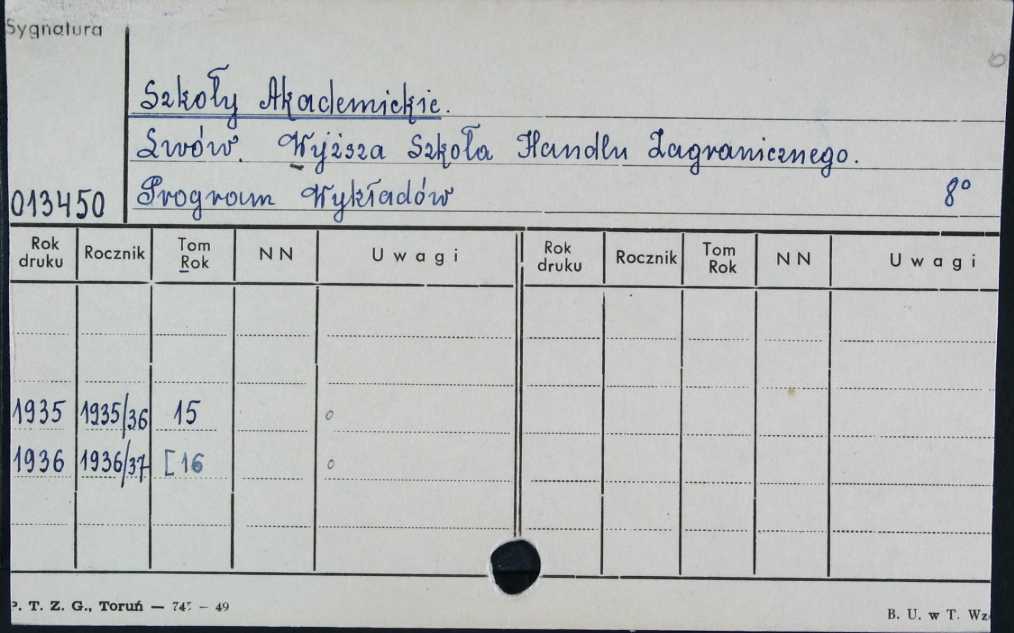 Sygnatura
Szkoły Akademickie.
Lwów. Wyższa Szkoła Handlu Zagranicznego.
013450 Program Wykładów 8°
Rok druku Rocznik Tom Rok NN Uwagi Rok druku Rocznik Tom Rok NN Uwagi
1935 1935/36 15 o
1936 1936/37 [16 o
P. T. Z. G., Toruń — 49
B. U. w T.